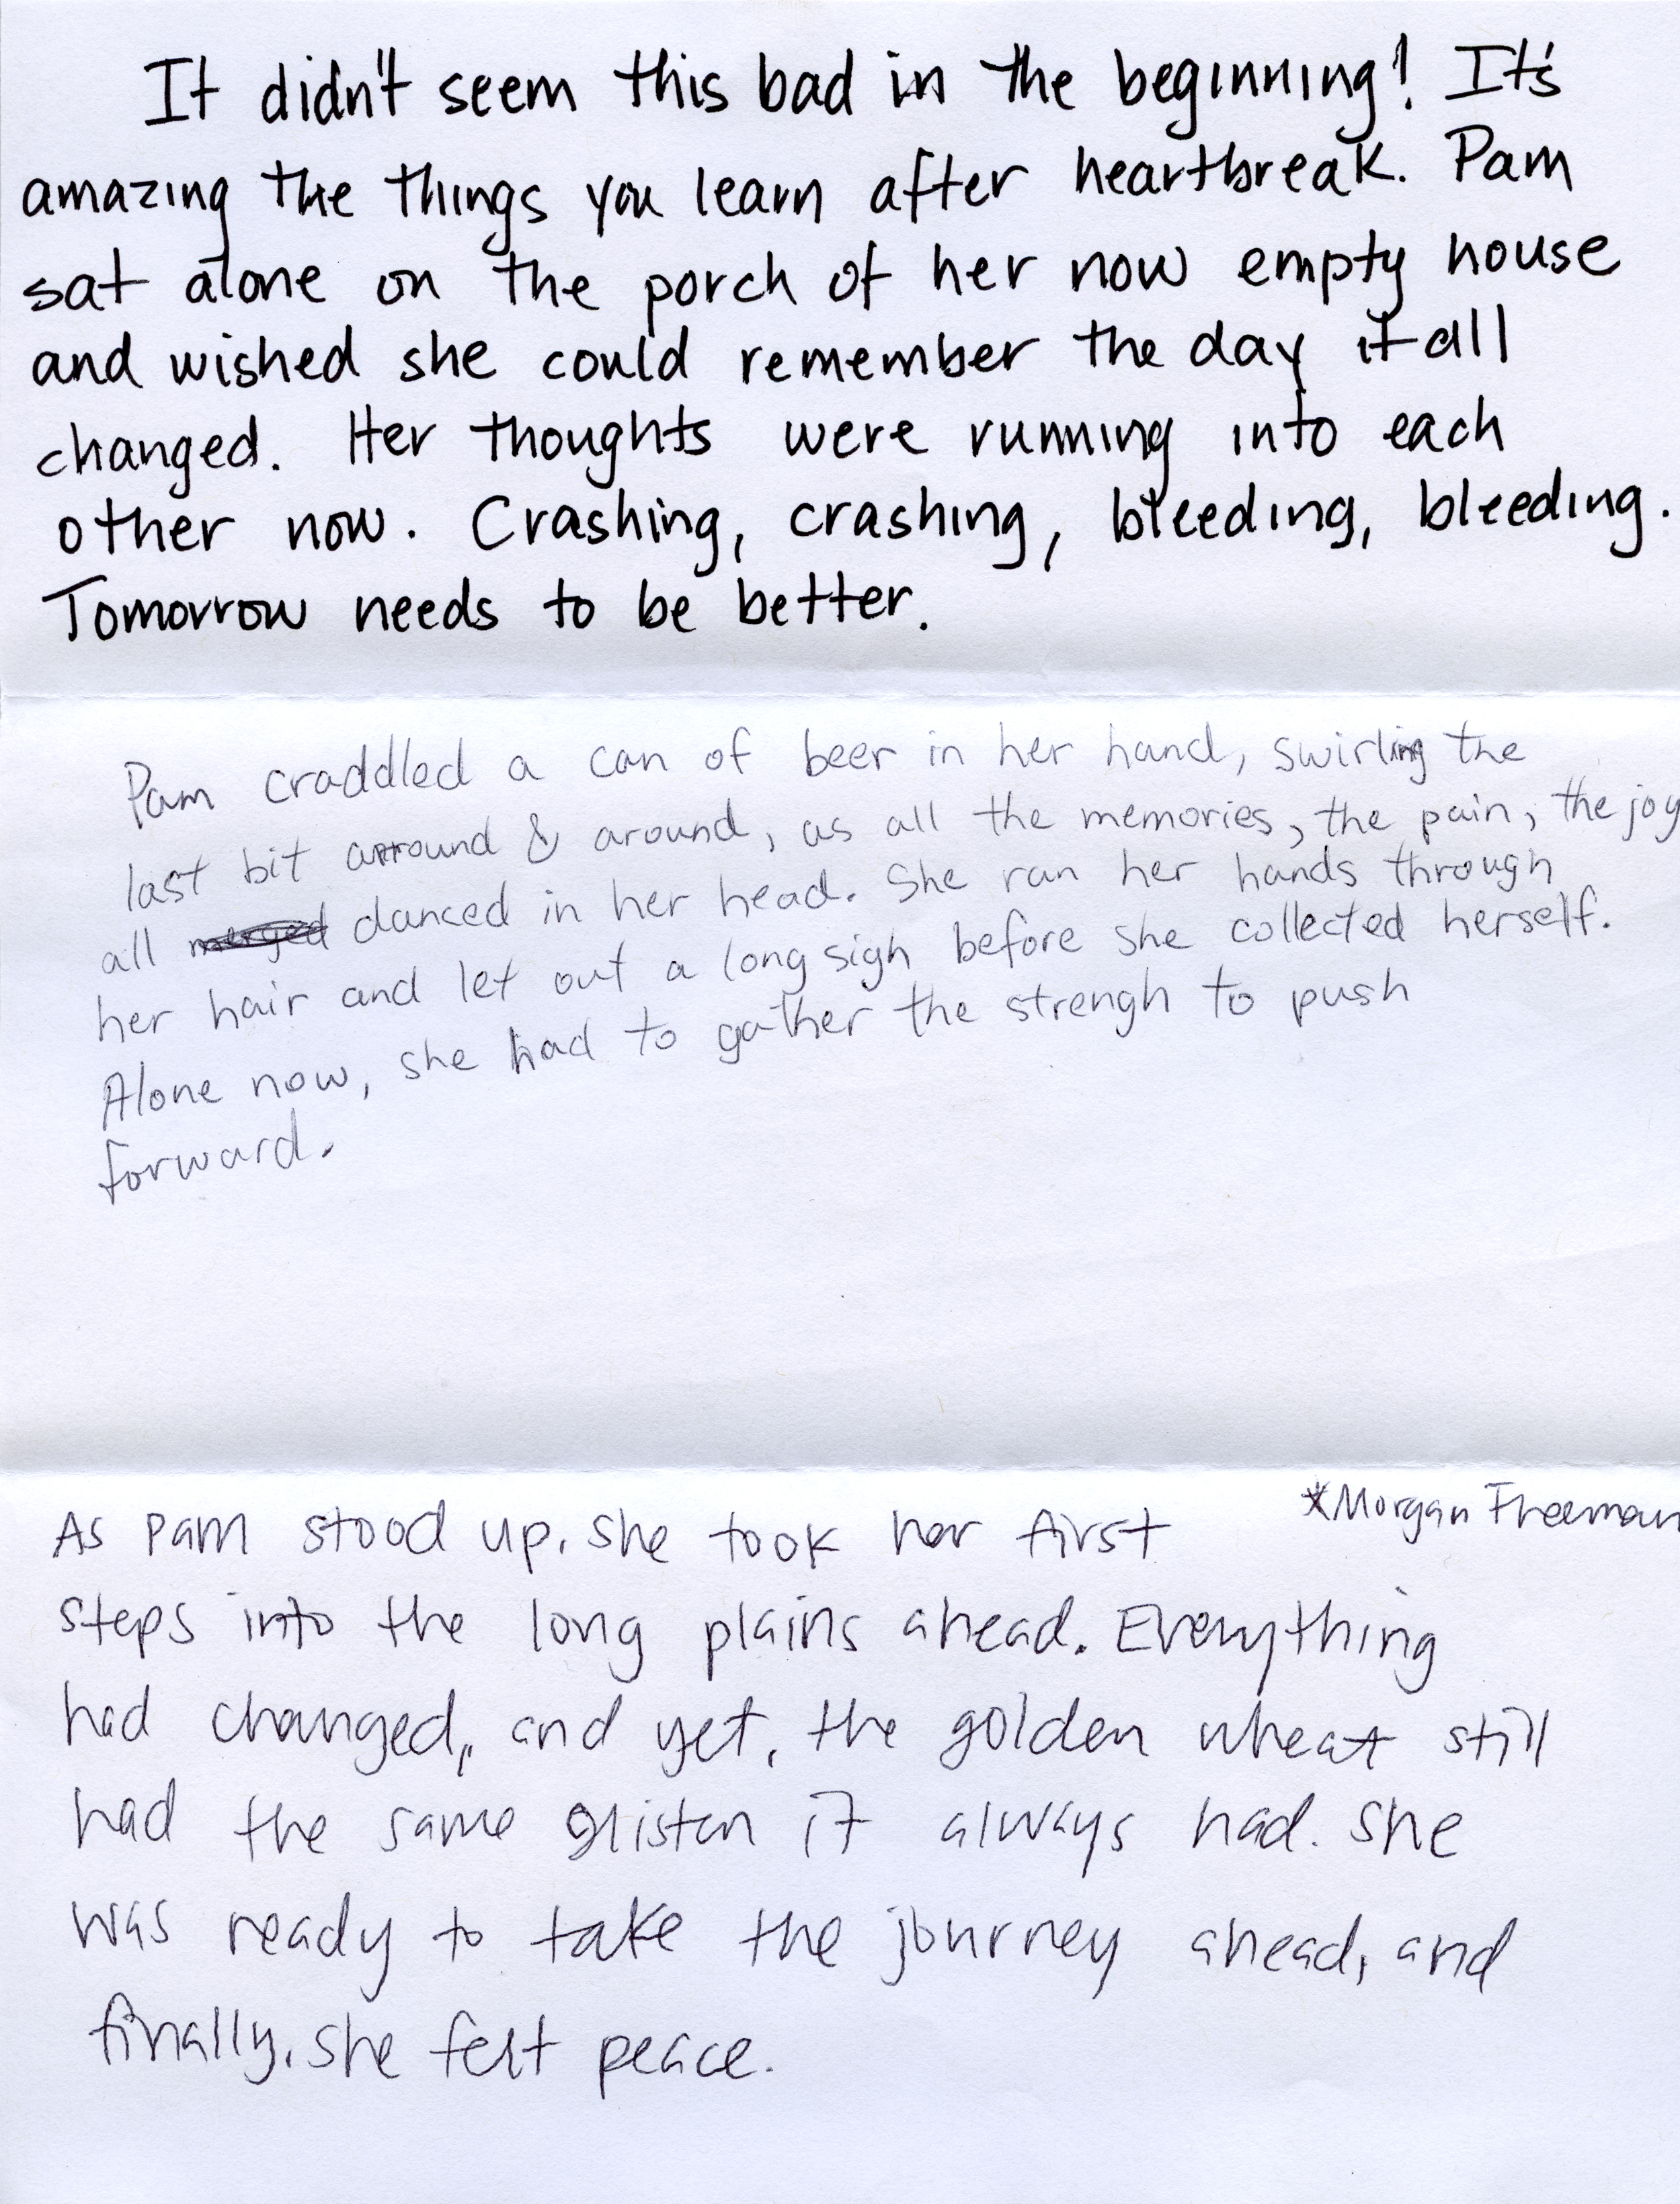 It didn't seem this bad in the beginning! It's
amazing the things you learn after heartbreak. Pam
sat alone on the porch of her now empty house
and wished she could remember the day it all
changed. Her thoughts were running into each
other now. Crashing, crashing, bleeding, bleeding.
Tomorrow needs to be better.
Pam craddled a can of beer in her hand, swirling the
last bit around & around, as all the memories, the pain, the joy
all merged danced in her head. She ran her hands through
her hair and let out a long sigh before she collected herself.
Alone now, she had to gather the strengh to push
forward.
*Morgan Freeman
As Pam stood up, she took her first
steps into the long plains ahead. Everything
had changed, and yet, the golden wheat still
had the same glisten it always had. She
was ready to take the journey ahead, and
finally, she felt peace.